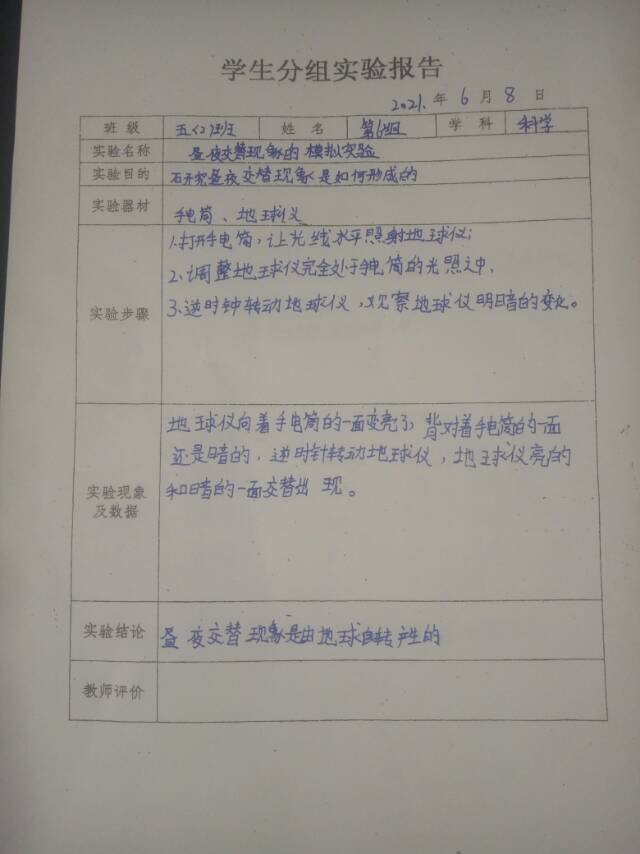 学生分组实验报告
2021.年 6 月 8 日
班 级 五(2)班 姓 名 第6组 学 科 科学
实验名称 昼夜交替现象的模拟实验
实验目的 研究昼夜交替现象是如何形成的
实验器材 手电筒、地球仪
实验步骤
1.打开手电筒,让光线水平照射地球仪;
2.调整地球仪完全处于手电筒的光照之中,
3.逆时钟转动地球仪,观察地球仪明暗的变化。
实验现象及数据
地球仪向着手电筒的一面变亮了,背对着手电筒的一面
还是暗的,逆时针转动地球仪,地球仪亮的
和暗的一面交替出现。
实验结论 昼夜交替现象是由地球自转产生的
教师评价